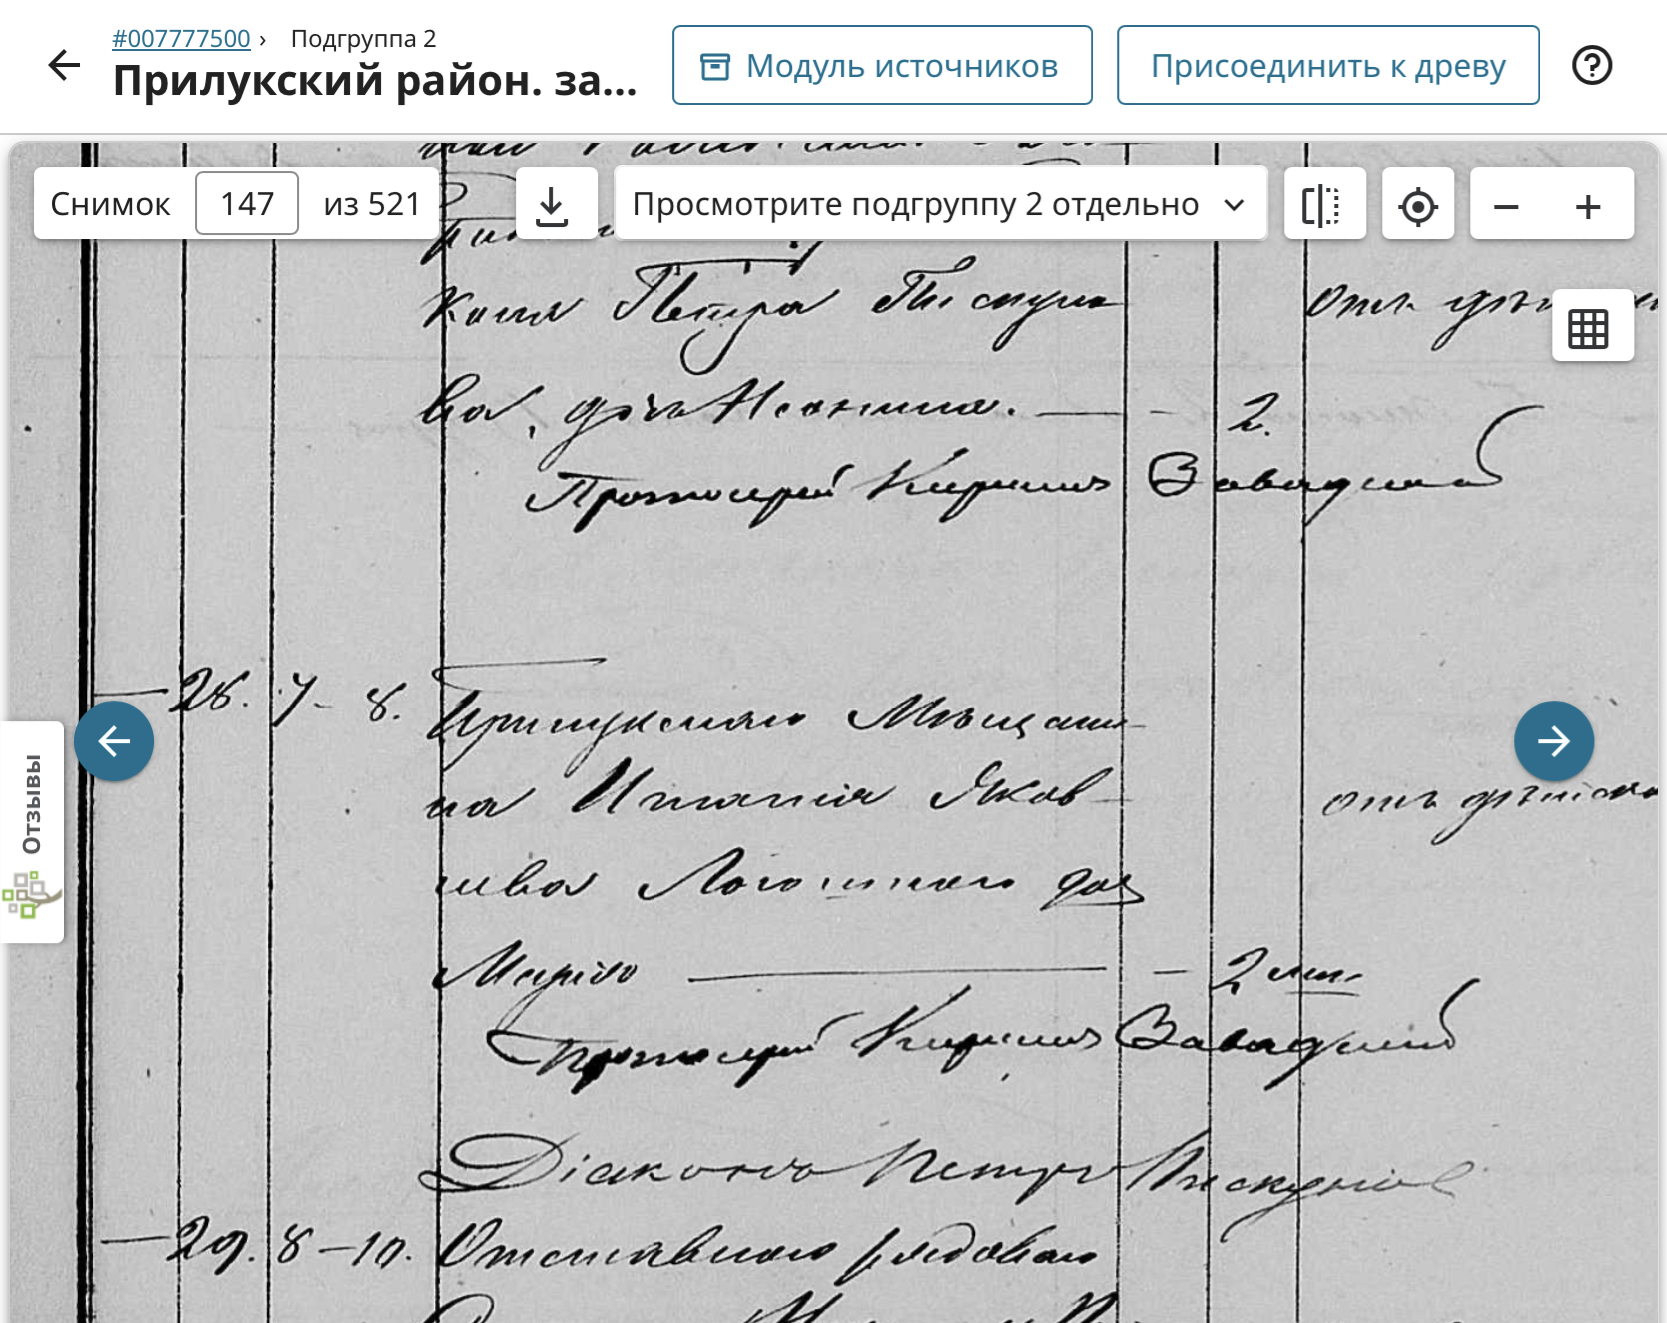 #007777500 › Подгруппа 2
Прилукский район. за...
Модуль источников
Присоединить к древу
Снимок 147 из 521
Просмотрите подгруппу 2 отдельно
кона Петра Пискуно отъ
ва, дочь 2.
Протоіерей Кириллъ Завадскій
28. 7 - 8. Прилукскаго Мѣщани
на Игнатія Яков отъ
лева дочь
Марія — 2 мѣс.
Протоіерей Кириллъ Завадскій
Діаконъ Петръ Пискуновъ
29. 8 - 10. Отставнаго рядоваго
Отзывы